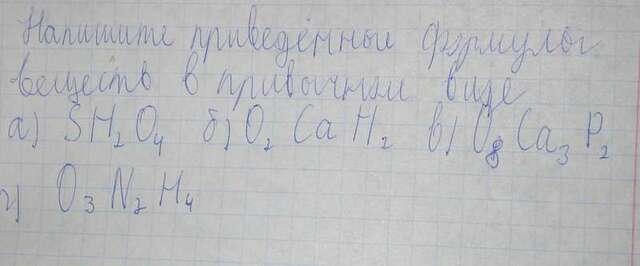 Напишите приведённые формулы
веществ в привычном виде
а) SH₂O₄ б) O₂ Ca H₂ в) O₈ Ca₃ P₂
г) O₃ N₂ H₄